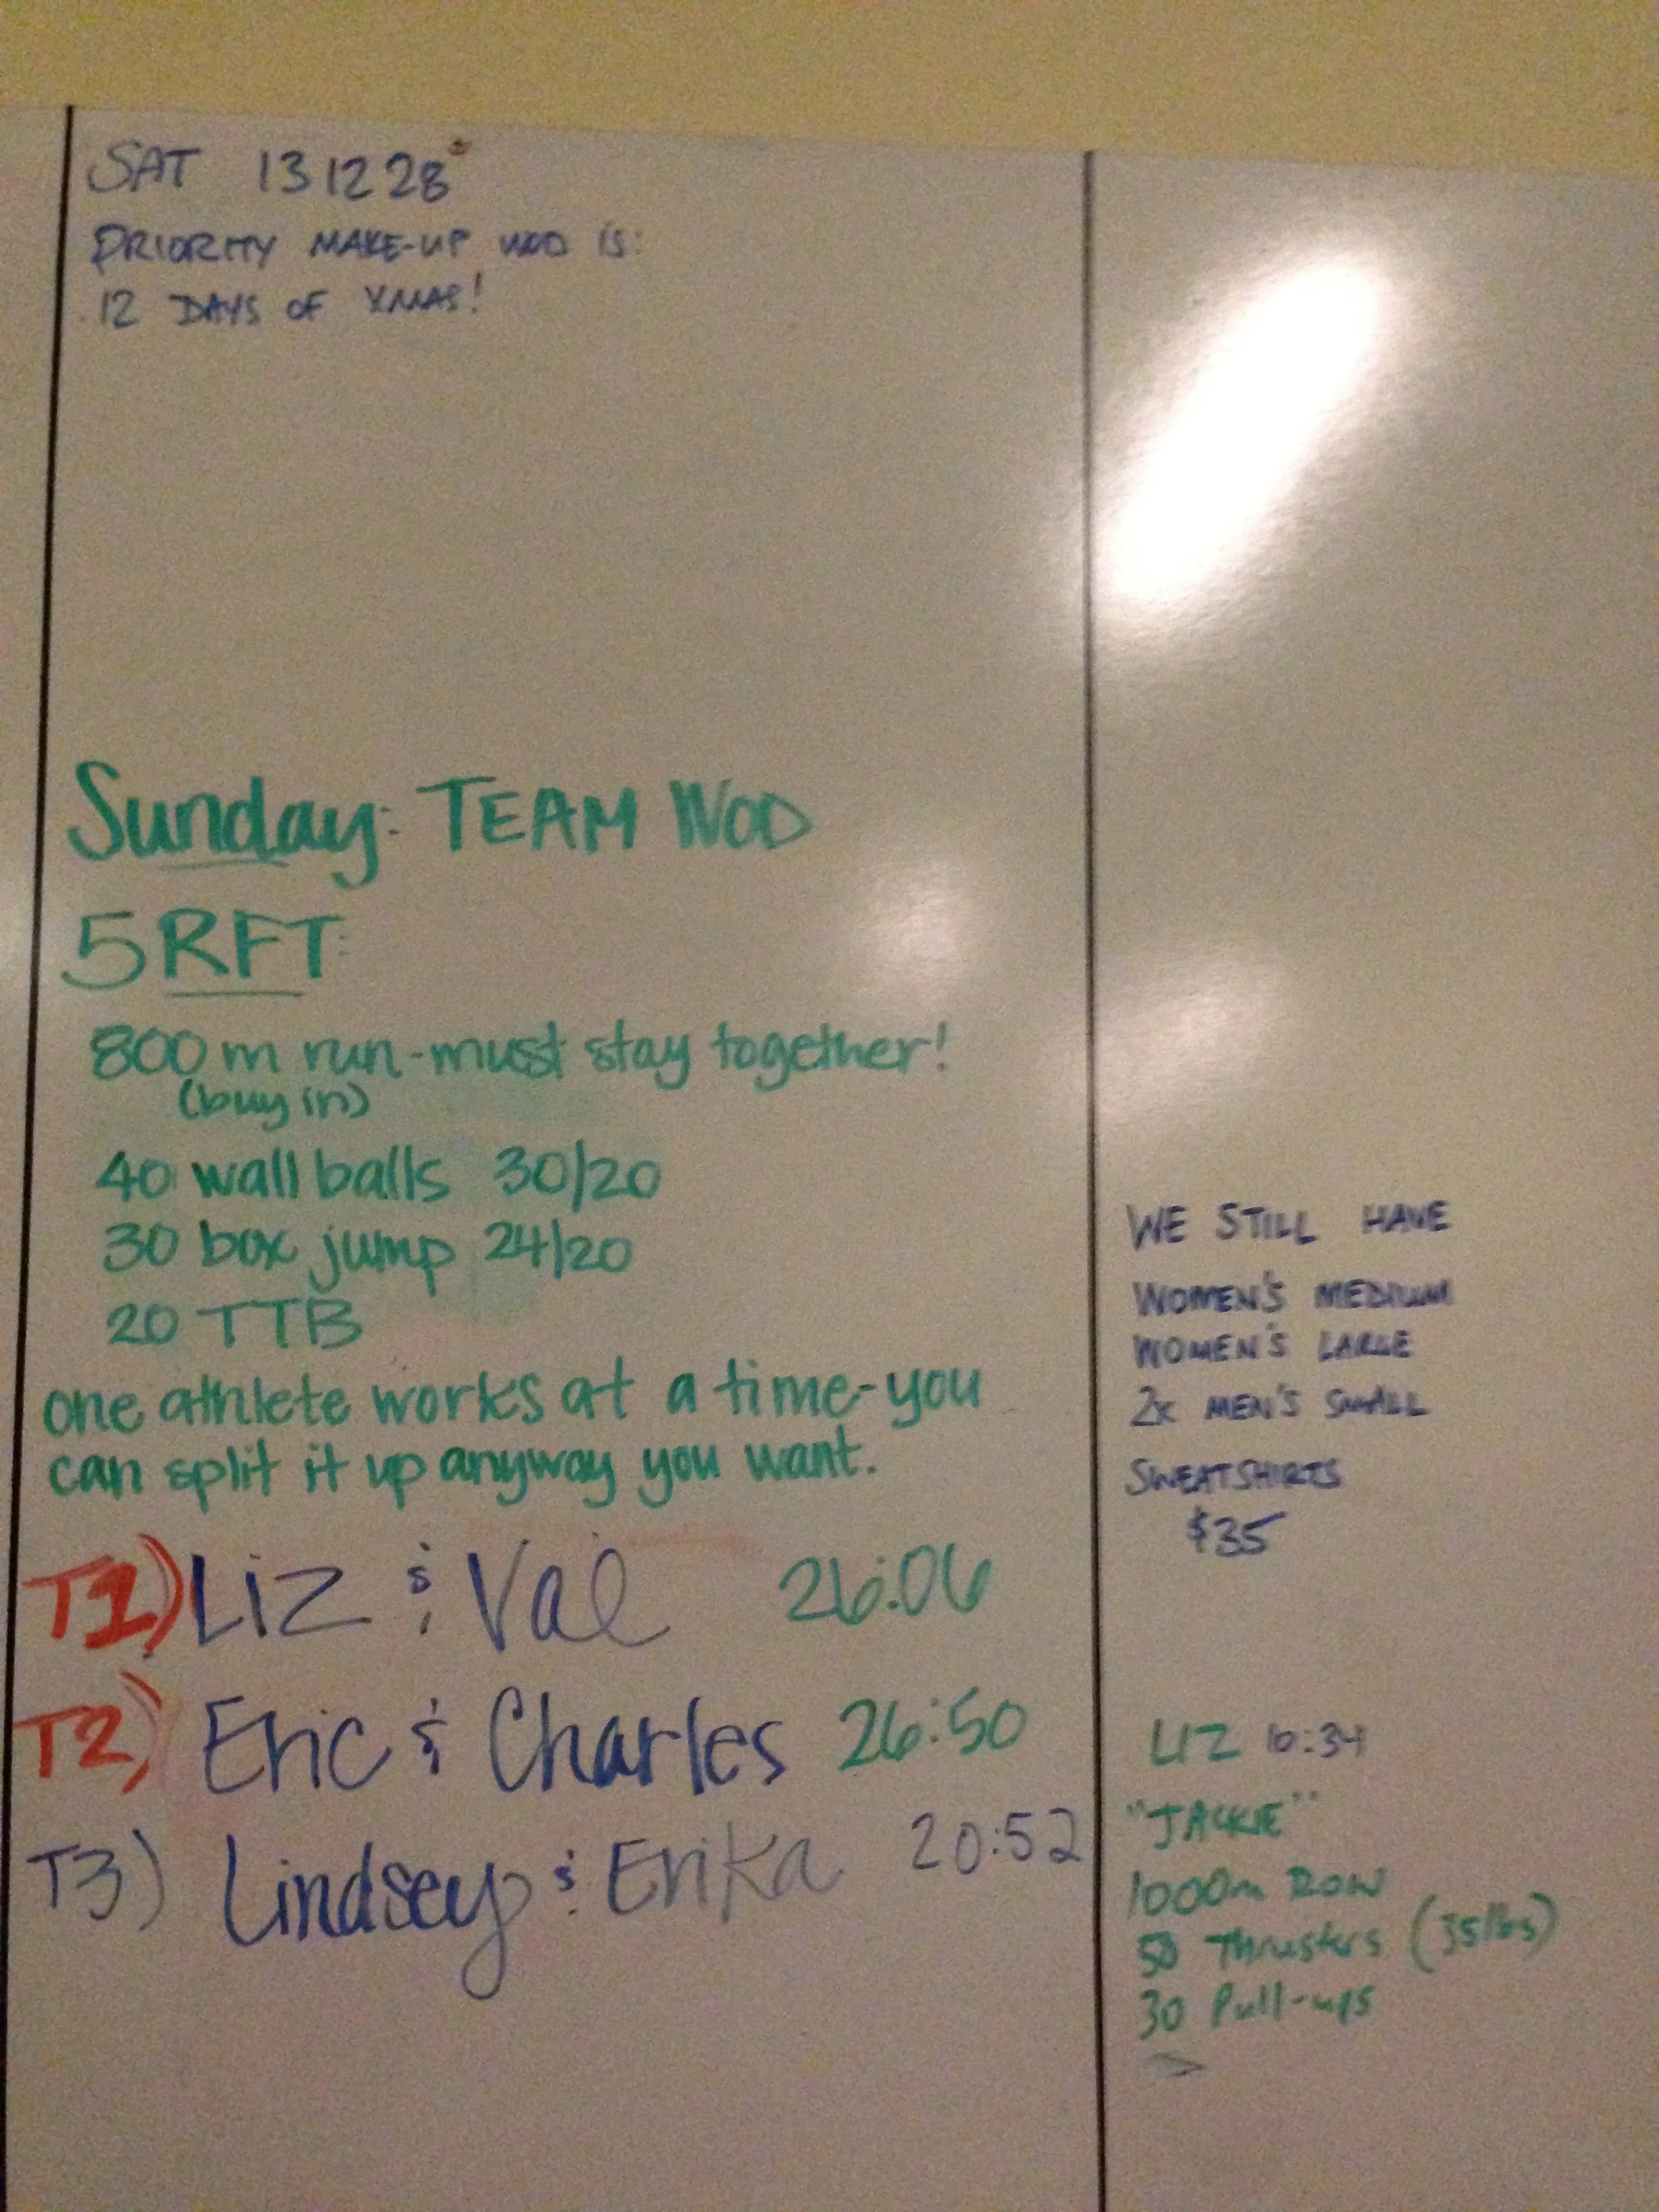 SAT 131228
PRIORITY MAKE-UP WOD IS:
12 DAYS OF XMAS!
Sunday: TEAM WOD
5 RFT:
800 m run - must stay together!
(buy in)
40 wall balls 30/20
30 box jump 24/20
20 TTB
one athlete works at a time - you
can split it up anyway you want.
T1) Liz & Val 26:06
T2) Eric & Charles 26:50
T3) Lindsey & Erika 20:52
WE STILL HAVE
WOMEN'S MEDIUM
WOMEN'S LARGE
2x MEN'S SMALL
SWEATSHIRTS
$35
LIZ
"JACKIE"
1000m ROW
50 Thrusters (35lbs)
30 Pull-ups